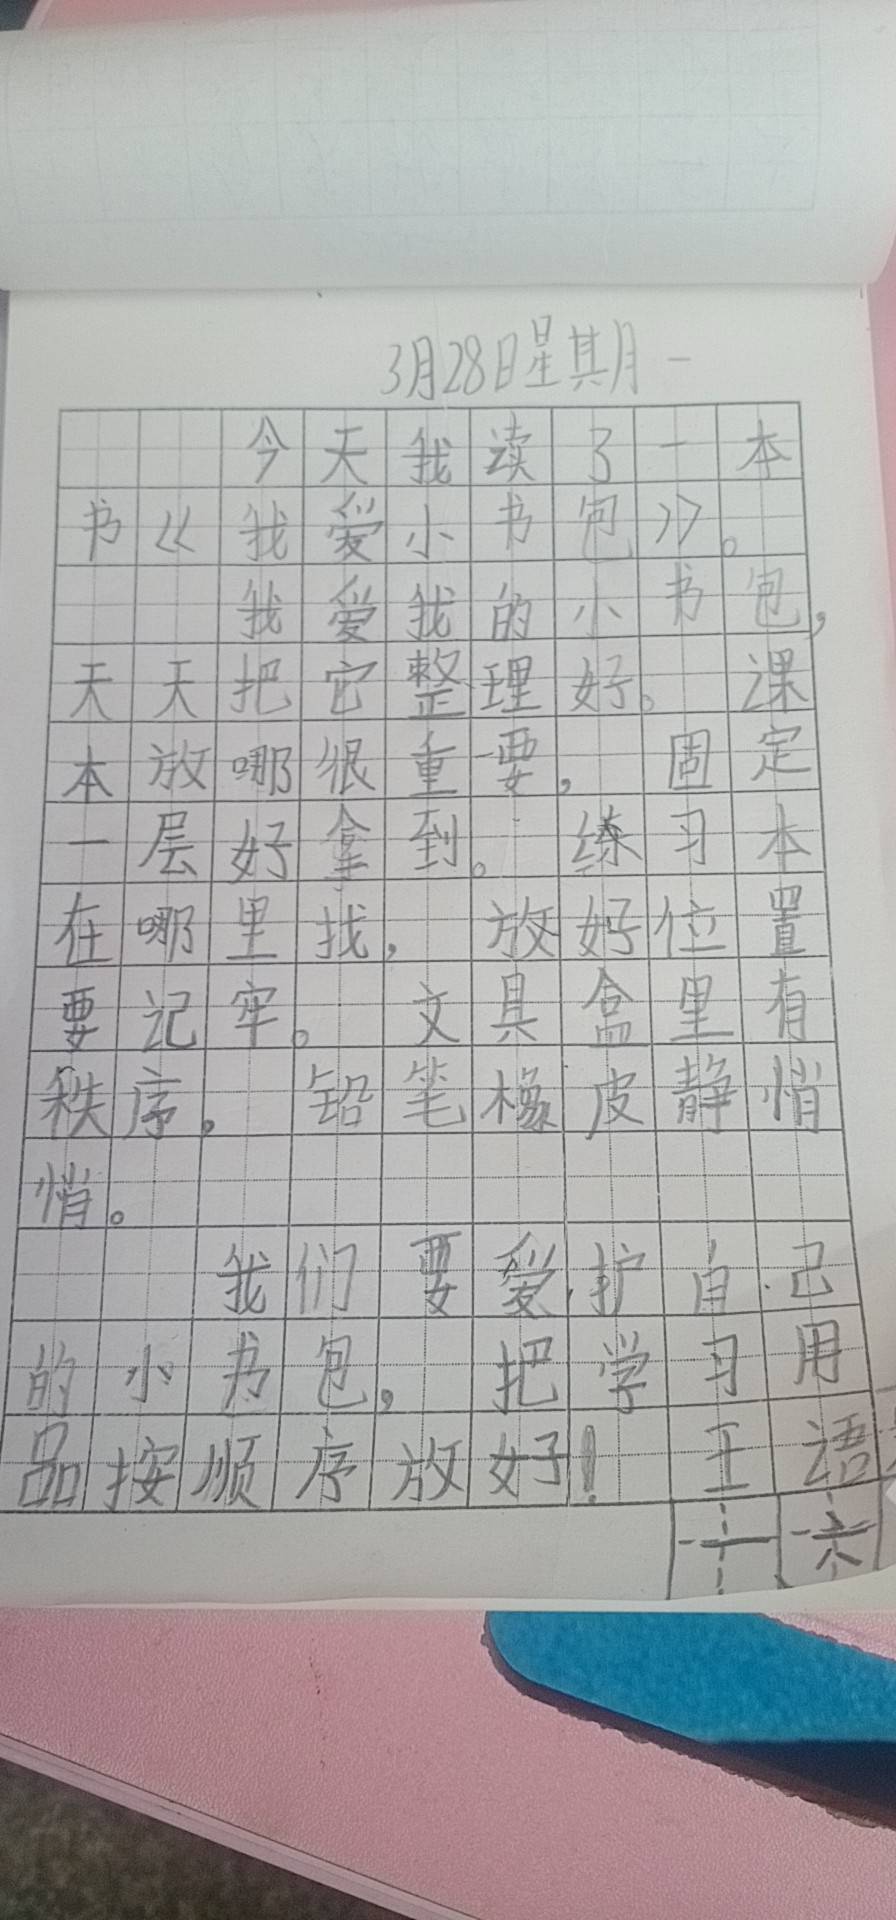 3月28日星其月一
今天我读了一本
书《我爱小书包》。
我爱我的小书包,
天天把它整理好。课
本放哪很重要,固定
一层好拿到。练习本
在哪里找,放好位置
要记牢。文具盒里有
秩序,铅笔橡皮静悄
悄。
我们要爱护自己
的小书包,把学习用
品按顺序放好!王语
一六